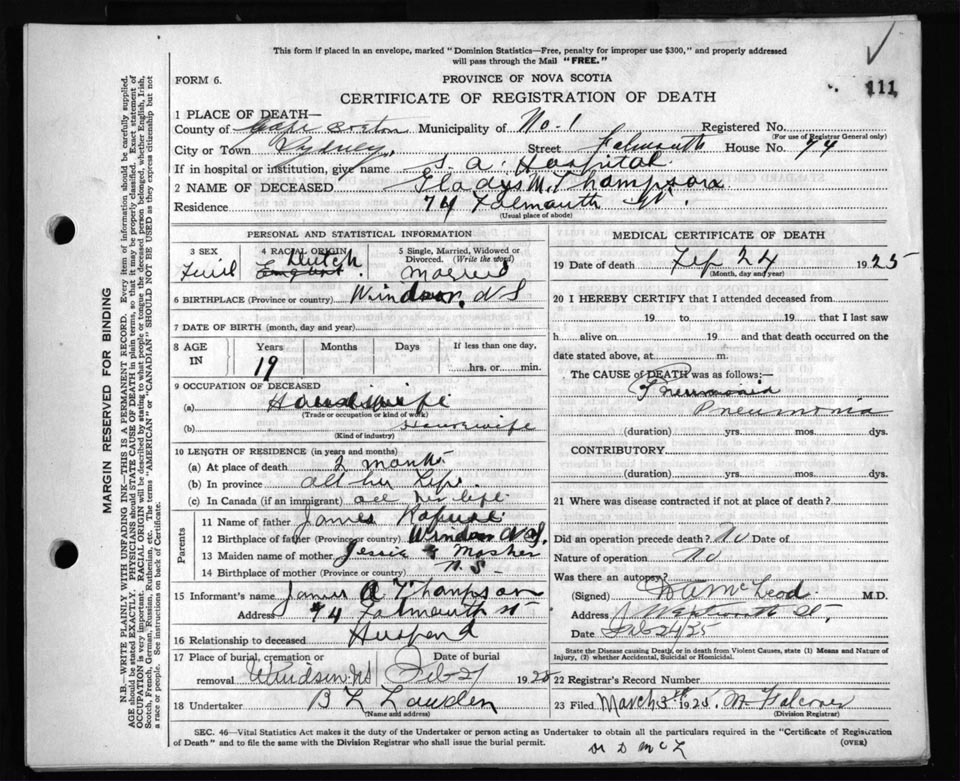 This form if placed in an envelope, marked "Dominion Statistics—Free, penalty for improper use $300," and properly addressed
will pass through the Mail "FREE."
111
FORM 6.
PROVINCE OF NOVA SCOTIA
CERTIFICATE OF REGISTRATION OF DEATH
1 PLACE OF DEATH—
County of Cape Breton Municipality of No. 1 Registered No.
(For use of Registrar General only)
City or Town Sydney. Street Falmouth House No. 74
If in hospital or institution, give name S. A. Hospital
2 NAME OF DECEASED Gladys M. Thompson
Residence 74 Falmouth St.
(Usual place of abode)
PERSONAL AND STATISTICAL INFORMATION
3 SEX
4 RACIAL ORIGIN Dutch
5 Single, Married, Widowed or
Divorced. (Write the word)
Married
6 BIRTHPLACE (Province or country) Windsor, N S
7 DATE OF BIRTH (month, day and year)
8 AGE IN Years Months Days If less than one day,
19 hrs. or min.
9 OCCUPATION OF DECEASED
(a) Housewife
(Trade or occupation or kind of work)
(b) Housewife
(Kind of industry)
10 LENGTH OF RESIDENCE (in years and months)
(a) At place of death 2 months
(b) In province all her life
(c) In Canada (if an immigrant) all her life
Parents
11 Name of father James
12 Birthplace of father (Province or country) Windsor N S.
13 Maiden name of mother Jessie Mosher
14 Birthplace of mother (Province or country) N. S.
15 Informant's name James A Thompson
Address 74 Falmouth St
16 Relationship to deceased Husband
17 Place of burial, cremation or Date of burial
removal Windsor N S Feb 27 1925
18 Undertaker B L
(Name and address)
MEDICAL CERTIFICATE OF DEATH
19 Date of death Feb 24 1925
(Month, day and year)
20 I HEREBY CERTIFY that I attended deceased from
19 to 19 that I last saw
h alive on 19 and that death occurred on the
date stated above, at m.
The CAUSE of DEATH was as follows:—
Pneumonia
Pneumonia
(duration) yrs. mos. dys.
CONTRIBUTORY
(duration) yrs. mos. dys.
21 Where was disease contracted if not at place of death?
Did an operation precede death? No Date of
Nature of operation No
Was there an autopsy?
(Signed) McLeod M.D.
Address Wentworth St.
Date Feb 24 25
State the Disease causing Death, or in death from Violent Causes, state (1) Means and Nature of
Injury, (2) whether Accidental, Suicidal or Homicidal.
22 Registrar's Record Number
23 Filed March 3th 1925 M Falconer
(Division Registrar)
SEC. 46—Vital Statistics Act makes it the duty of the Undertaker or person acting as Undertaker to obtain all the particulars required in the "Certificate of Registration
of Death" and to file the same with the Division Registrar who shall issue the burial permit. (OVER)
MARGIN RESERVED FOR BINDING
N.B.—WRITE PLAINLY WITH UNFADING INK—THIS IS A PERMANENT RECORD. Every item of information should be carefully supplied.
AGE should be stated EXACTLY. PHYSICIANS should STATE CAUSE OF DEATH in plain terms, so that it may be properly classified. Exact statement of
OCCUPATION is very important. RACIAL ORIGIN will be described by stating to what people or tongue the deceased person belonged, whether English, Irish,
Scotch, French, German, Russian, Ruthenian, etc. The terms "AMERICAN" or "CANADIAN" SHOULD NOT BE USED as they express citizenship but not
a race or people. See instructions on back of Certificate.